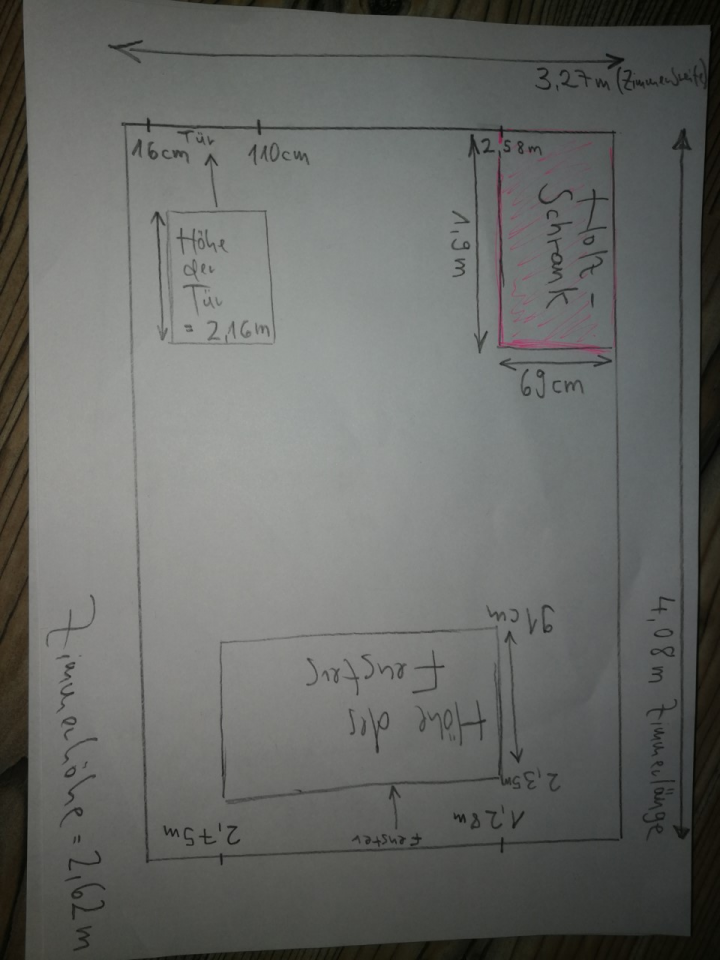 3,27m (Zimmerbreite)
16cm
Tür
110cm
2,58m
Höhe
der
Tür
= 2,16m
1,9m
Holz-
Schrank
69cm
4,08m Zimmerlänge
91cm
Höhe des
Fensters
2,35m
1,28m
Fenster
2,75m
Zimmerhöhe = 2,62m